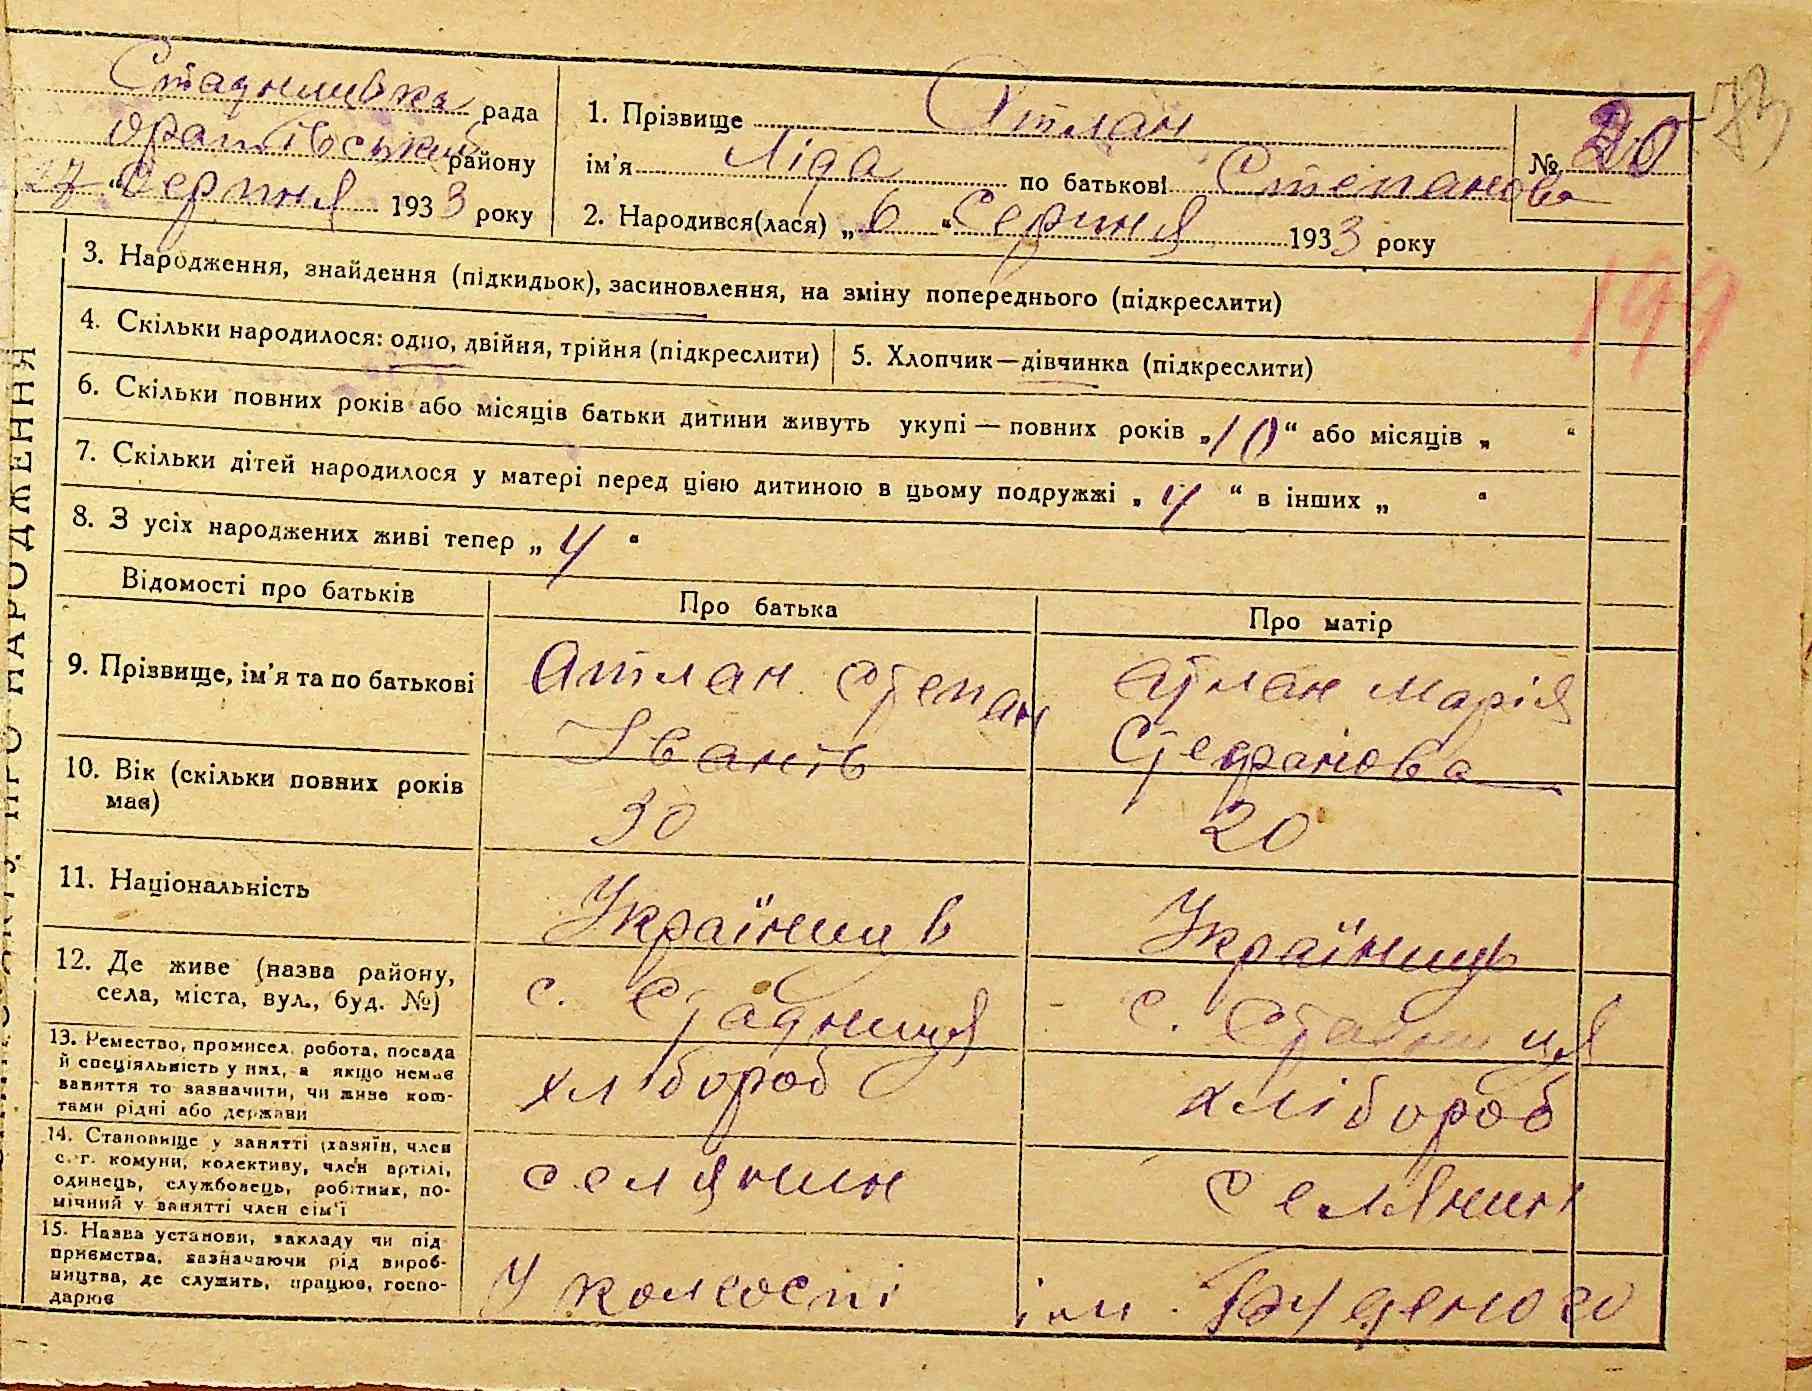 Стадницька рада
Оратівський району
27 "Серпня 1933 року
1. Прізвище Атлан
ім'я Ліда по батькові Степанова
№ 20
73
2. Народився(лася) „6" Серпня 1933 року
199
3. Народження, знайдення (підкидьок), засиновлення, на зміну попереднього (підкреслити)
4. Скільки народилося: одно, двійня, трійня (підкреслити) 5. Хлопчик—дівчинка (підкреслити)
6. Скільки повних років або місяців батьки дитини живуть укупі — повних років „10" або місяців „ "
7. Скільки дітей народилося у матері перед цією дитиною в цьому подружжі „4" в інших „ "
8. З усіх народжених живі тепер „4"
Відомості про батьків Про батька Про матір
9. Прізвище, ім'я та по батькові Атлан Степан Атлан Марія
Іванів Стефанова
10. Вік (скільки повних років
має) 30 20
11. Національність Українець Українць
12. Де живе (назва району,
села, міста, вул., буд. №) с. Стадниця с. Стадниця
13. Ремество, промисел, робота, посада
й спеціяльність у них, а якщо немає
заняття то зазначити, чи живе кош-
тами рідні або держави хлібороб хлібороб
14. Становище у занятті (хазяїн, член
с.-г. комуни, колективу, член артілі,
одинець, службовець, робітник, по-
мічний у занятті член сім'ї селянин селянин
15. Назва установи, закладу чи під-
приємства, зазначаючи рід вироб-
ництва, де служить, працює, госпо-
дарює У колгоспі ім. Буденого
ПРО НАРОДЖЕННЯ